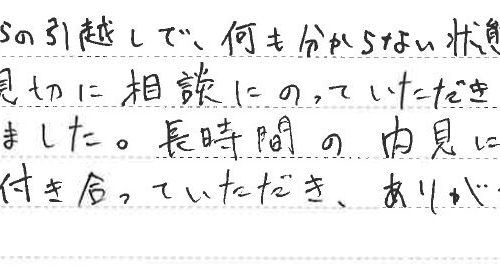 らの引越しで、何も分からない状態
見切に相談にのっていただき
ました。長時間の内見に
付き合っていただき、ありが